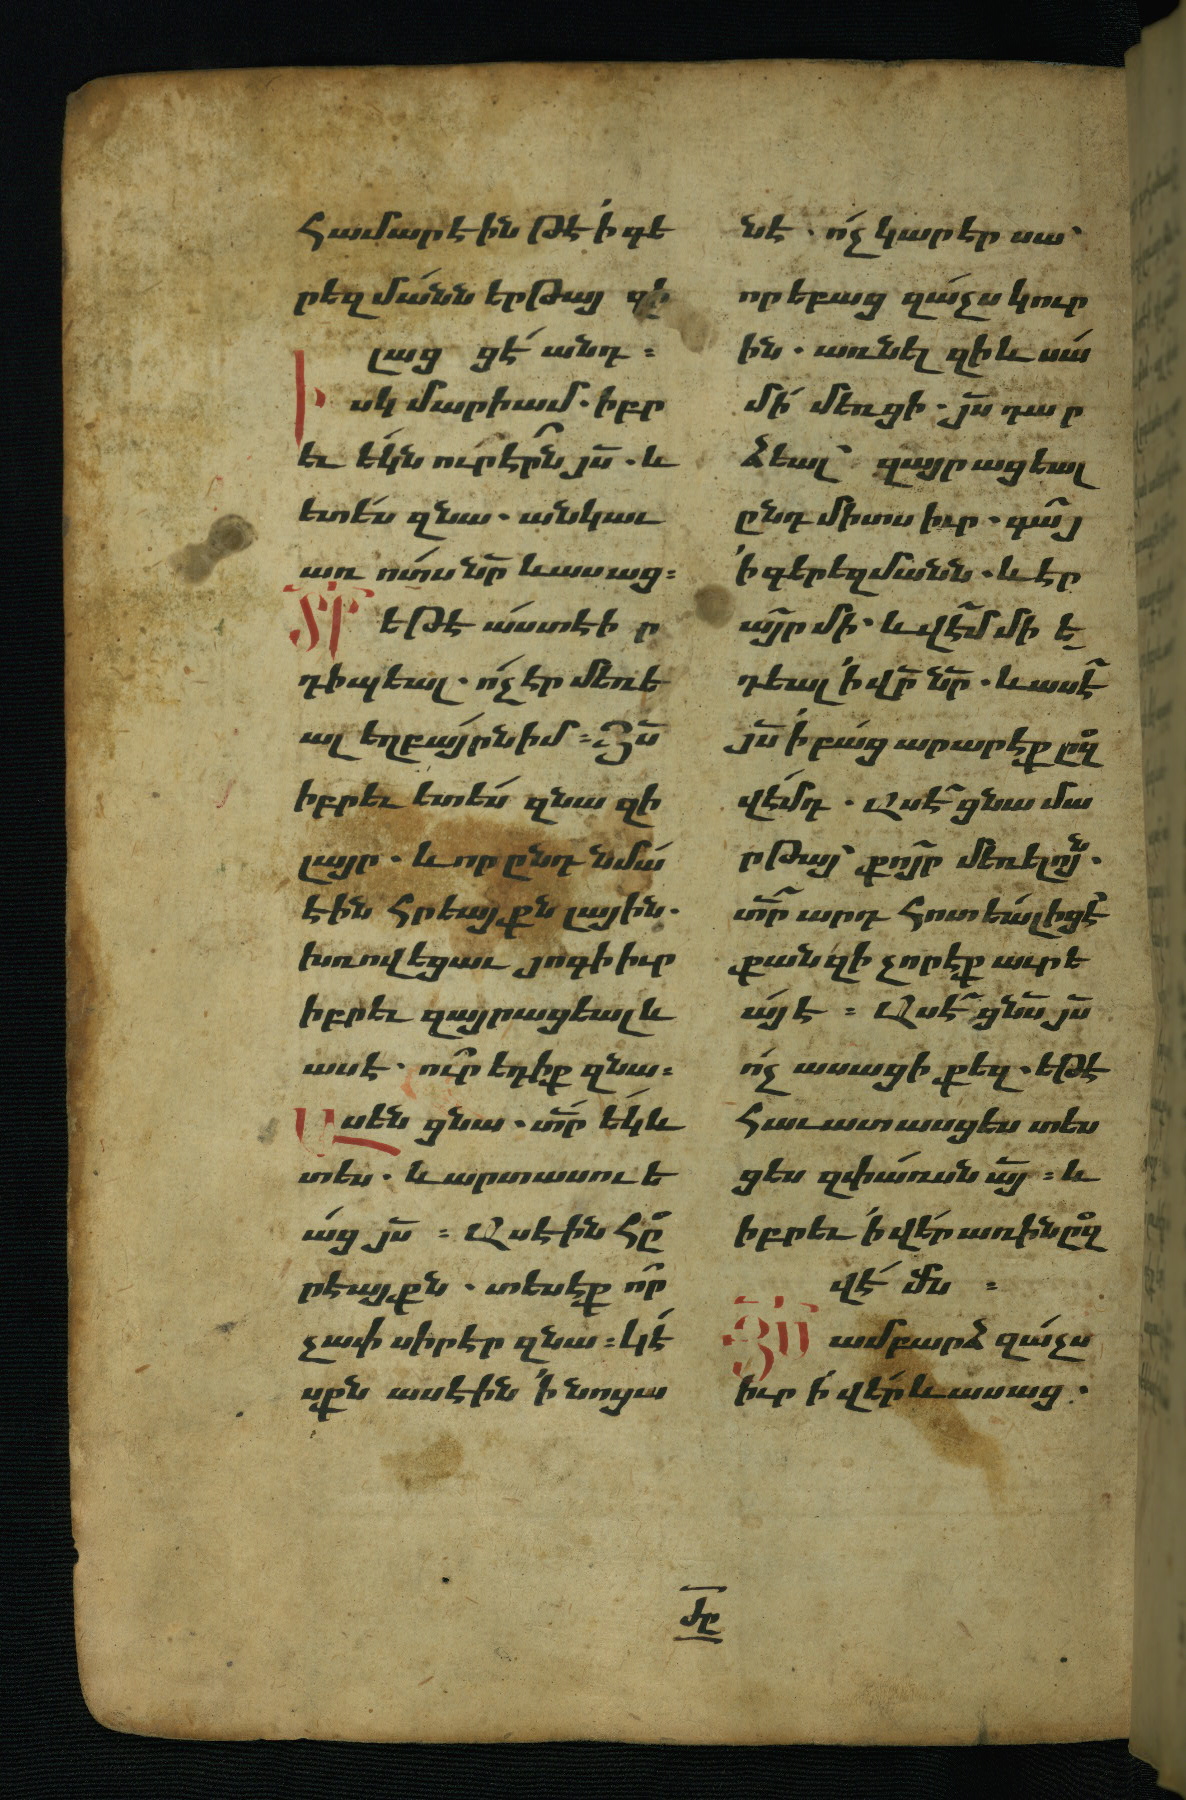 համարէին թէ ՛ի գե
րեզմանն երթայ զի
լաց ցէ անդ ։
Իսկ մարիամ . իբր
եւ եկն ուր էրն յս . և
ետես զնա . անկաւ
առ ոտս նր և ասաց ։
Տր եթէ աստ էիր
դիպեալ . ոչ էր մեռե
ալ եղբայրն իմ ։ Յս
իբրեւ ետես զնա զի
լայր . և որ ընդ նմա
էին հրեայքն լային .
խռովեցաւ յոգի իւր
իբրեւ զայրացեալ և
ասէ . ուր եդիք զնա ։
Ասեն ցնա . տր եկ և
տես . և արտասուե
աց յս ։ Ասէին հը
րէայքն . տեսէք որ
չափ սիրէր զնա ։ կէ
սքն ասէին ՛ի նոցա
նէ . ոչ կարէր սա՝
որ եբաց զաչս կուր
ին . առնել զի և սա
մի մեռցի . յս դար
ձեալ՝ զայրացեալ
ընդ միտս իւր . գայ
՛ի գերեզմանն . և էր
այր մի . և վէմ մի ե
դեալ ՛ի վր նր . և ասէ
յս ՛ի բաց արարէք ըզ
վէմդ . Ասէ ցնա մա
րթայ՝ քոյր մեռելոյն .
տր արդ հոտեալ իցէ
քանզի չորէք աւրե
այ է ։ Ասէ ցնս յս
ոչ ասացի քեզ . եթէ
հաւատասցես տես
ցես զփառսն այ ։ և
իբրեւ ՛ի վեր առին ըզ
վէմն ։
Յս ամբարձ զաչս
իւր ՛ի վեր և ասաց .
մը